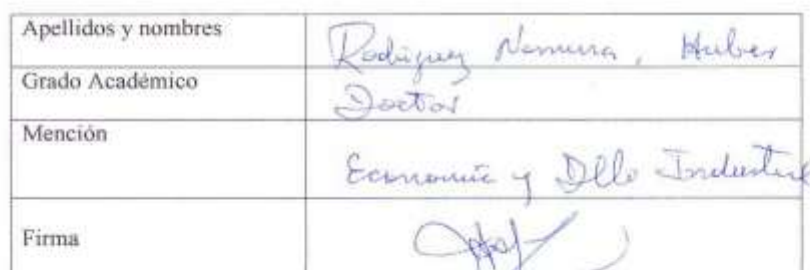 Apellidos y nombres Rodriguez Nomura, Huber
Grado Académico Doctor
Mención Economía y Dllo Industrial
Firma